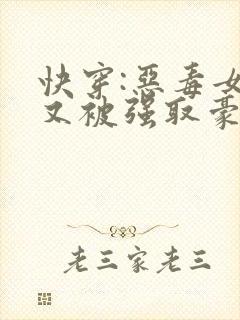 快穿:惡毒女
又被强取豪
老三家老三